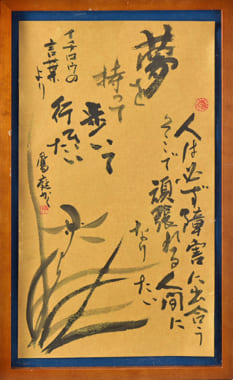 夢を
持って
歩いて
行きたい
人は必ず障害に出合う
そこで頑張れる人間に
なり
たい
イチローの
言葉
より